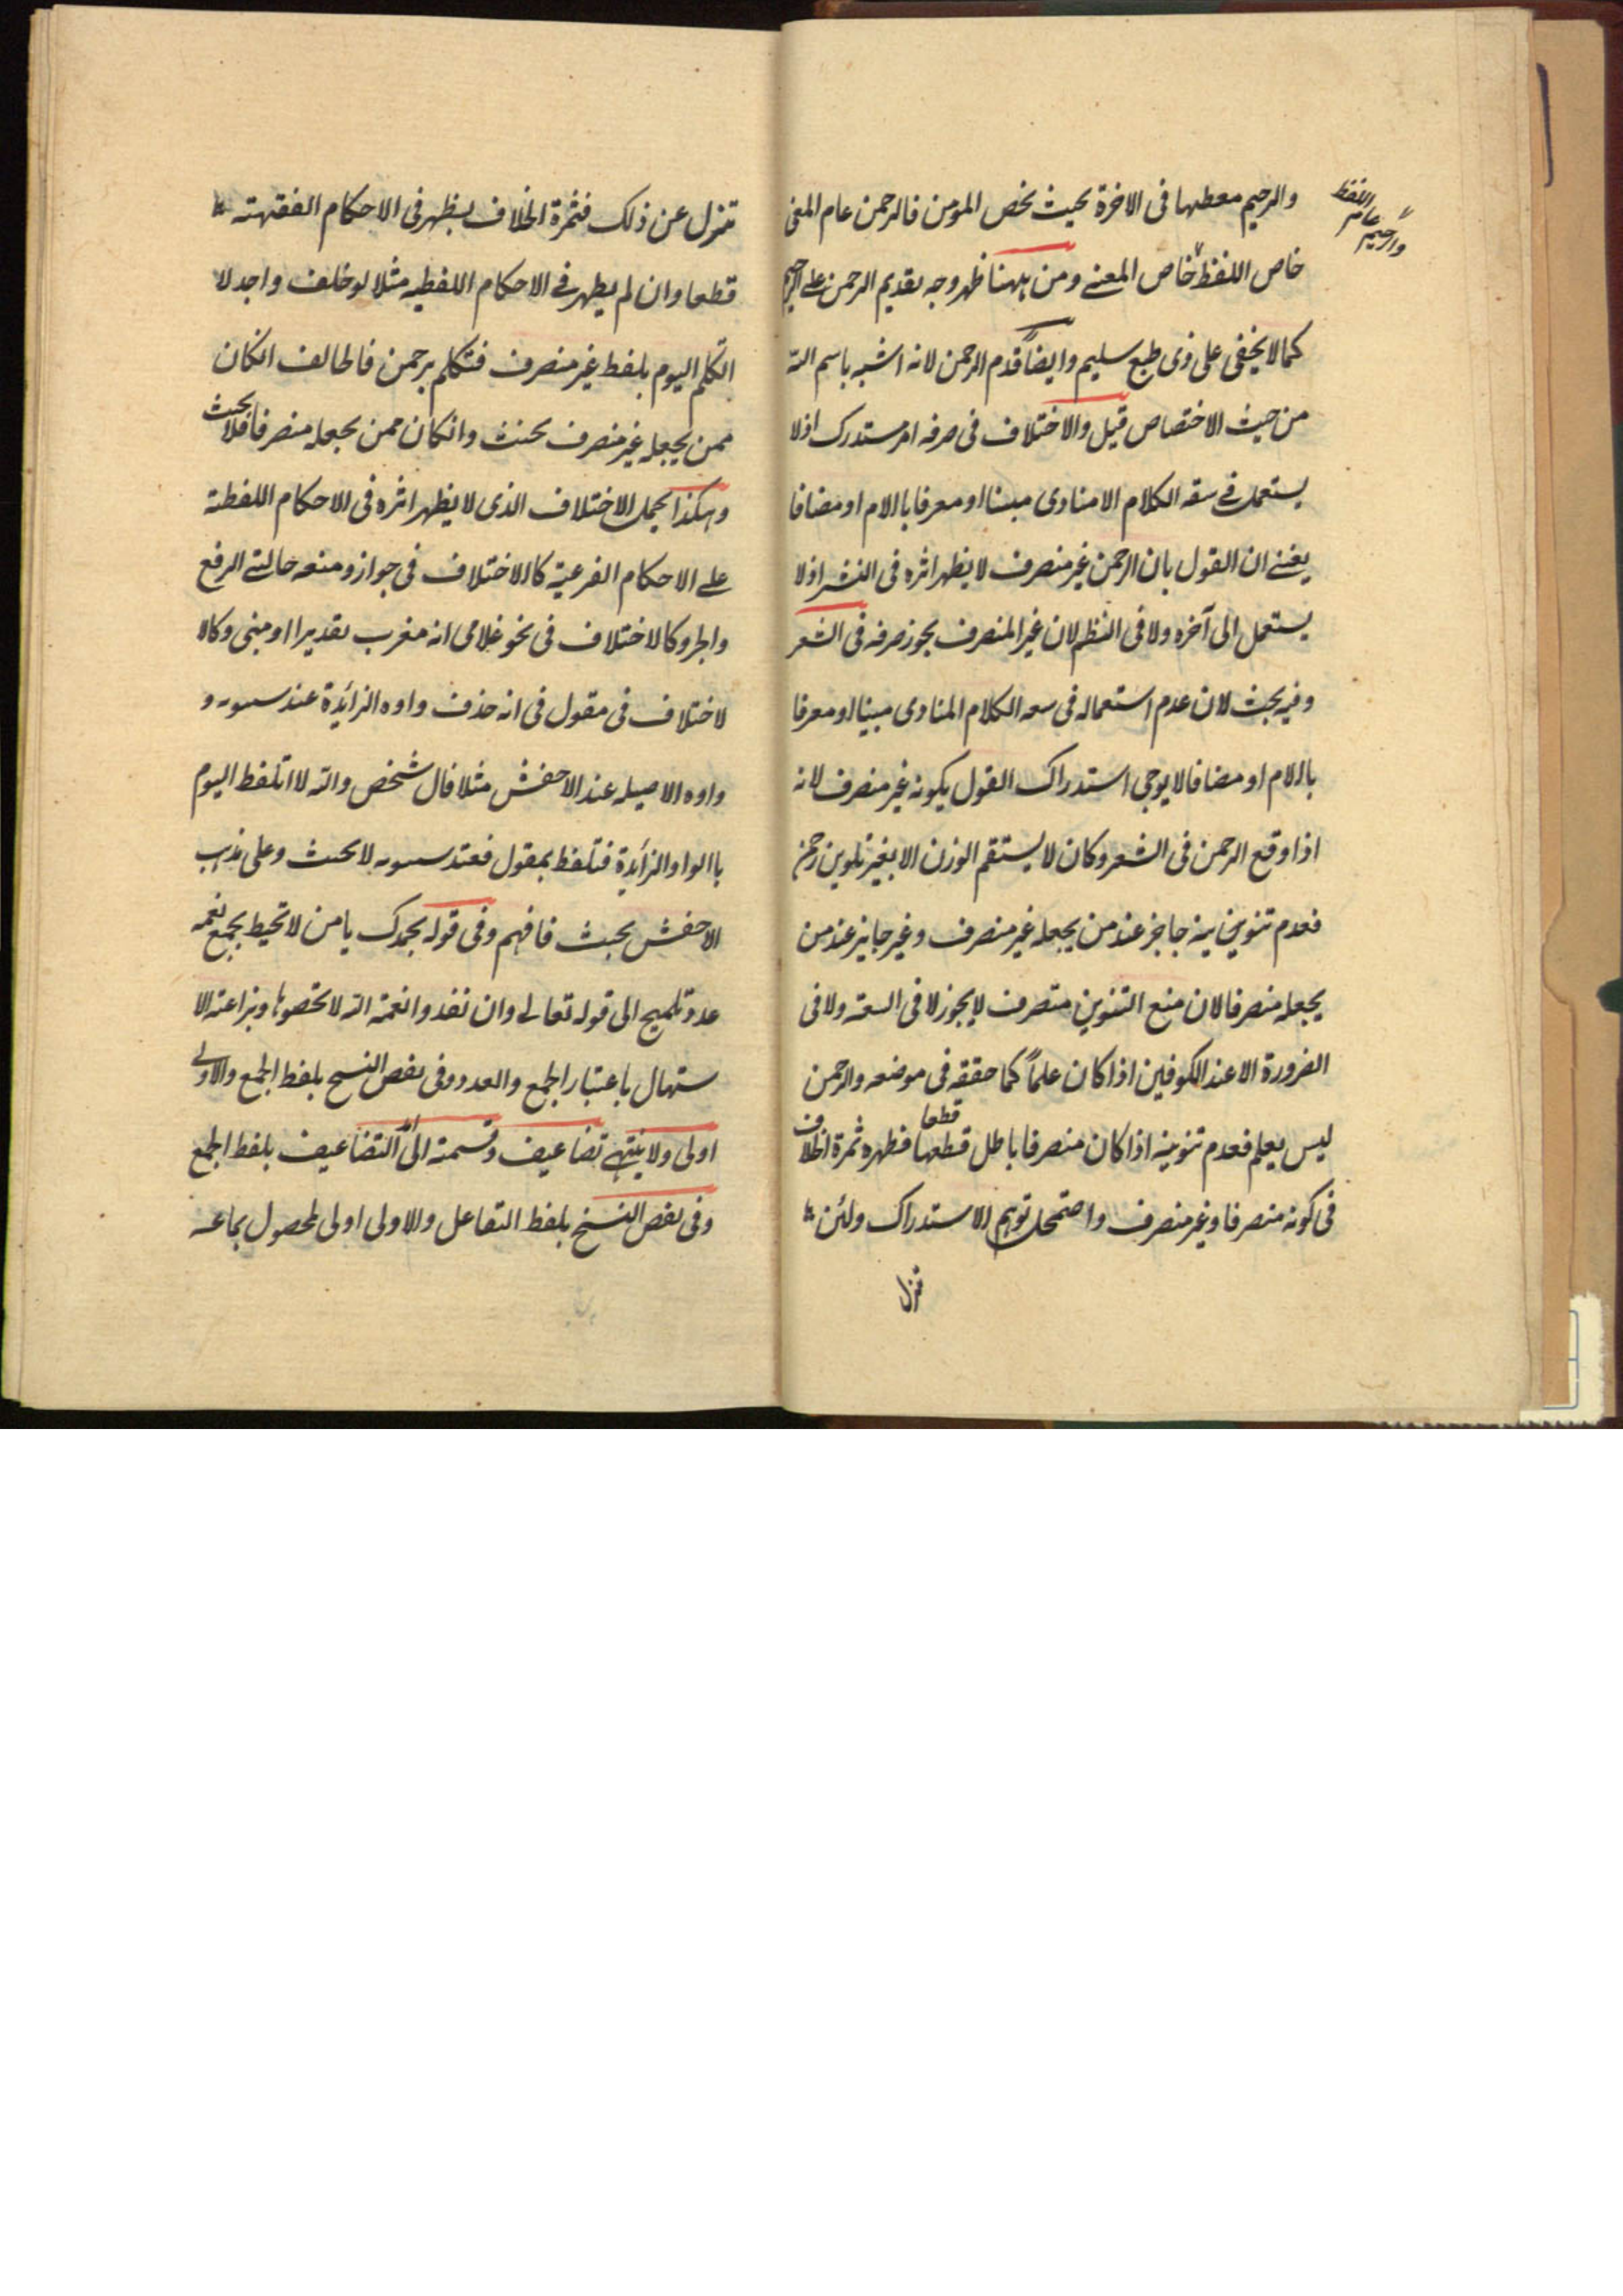 والرحيم معطيها فى الاخرة بحيث تخص المومن فالرحمن عام المعنى
خاص اللفظ خاص المعنے ومن ههنا ظهر وجه تقديم الرحمن على الرحيم
والرحيم عام اللفظ
كما لا يخفى على ذى طبع سليم وايضاً قدم الرحمن لانه اشبه باسم الله
من حيث الاختصاص قيل والاختلاف فى صرفه امر مستدرك اذلا
يستعمل فے سقه الكلام الا منادى مبنا او معرفا باالام او مضافا
يعنے ان القول بان الرحمن غير منصرف لا يظهر اثره فى النثر اذلا
يستعمل الى آخره ولا فى النظم لان غير المنصرف يجوز صرفه فى الشعر
وفيه بحث لان عدم استعماله فى سعه الكلام المنادى مبنيا او معرفا
باالام او مضافا لا يوجى استدراك القول بكونه غير منصرف لانه
اذا وقع الرحمن فى الشعر وكان لا يستقم الوزن الا بغير تلوين رحمن
فعدم تنوين ينه جاجز عند من يجعله غير منصرف وغير جايز عند من
يجعله منصرفا لان منع التنوين متصرف لا يجوز لا فى السعة ولا فى
الضرورة الا عند الكوفين اذا كان علماً كما حققه فى موضعه والرحمن
ليس بعلم فعدم تنوينه اذا كان منصرفا باطل قطعها قطعا فظهره ثمرة الخلاف
فى كونه منصرفا وغير منصرف واضمحل توهم الاستدراك ولئن
تنزل
تنزل عن ذلك فثمرة الخلاف يظهر فى الاحكام الفقهته
قطعا وان لم يظهر فے الاحكام اللفظيه مثلا لو خلف واجد لا
اتكلم اليوم بلفظ غير منصرف فتكلم برحمن فالحالف انكان
ممن يجعله غير منصرف يحنث وانكان ممن يجعله منصرفا فلا يحنث
وهكذا يحمل الاختلاف الذى لا يظهر اثره فى الاحكام اللفظة
علے الاحكام الفرعية كاالاختلاف فى جواز ومنعه حالتے الرفع
والجر وكالاختلاف فى نحو غلامى انه مغرب تقديرا او مبنى وكالا
لاختلاف فى مقول فى انه حذف واوه الزائدة عند سيبويه و
واوه الاصيله عند الاخفش مثلا قال شخص والله لا اتلفظ اليوم
باالواو الزائدة فتلفظ بمقول فعند سيبويه لا يحنث وعلى مذهب
الاخفش يحنث فافهم وفى قوله بحمدك يا من لا تحيط بجمع نعمه
عدد تلميح الى قوله تعالى وان تعدوا نعمة الله لا تحصوها وبراعته الا
ستهلال باعتبار الجمع والعدد وفى بعض النسح بلفظ الجمع والاولى
اولى ولا ينتهے تضاعيف وقسمته الى التضاعيف بلفظ الجمع
وفى بعض النسخ بلفظ التفاعل والاولى اولى لحصول